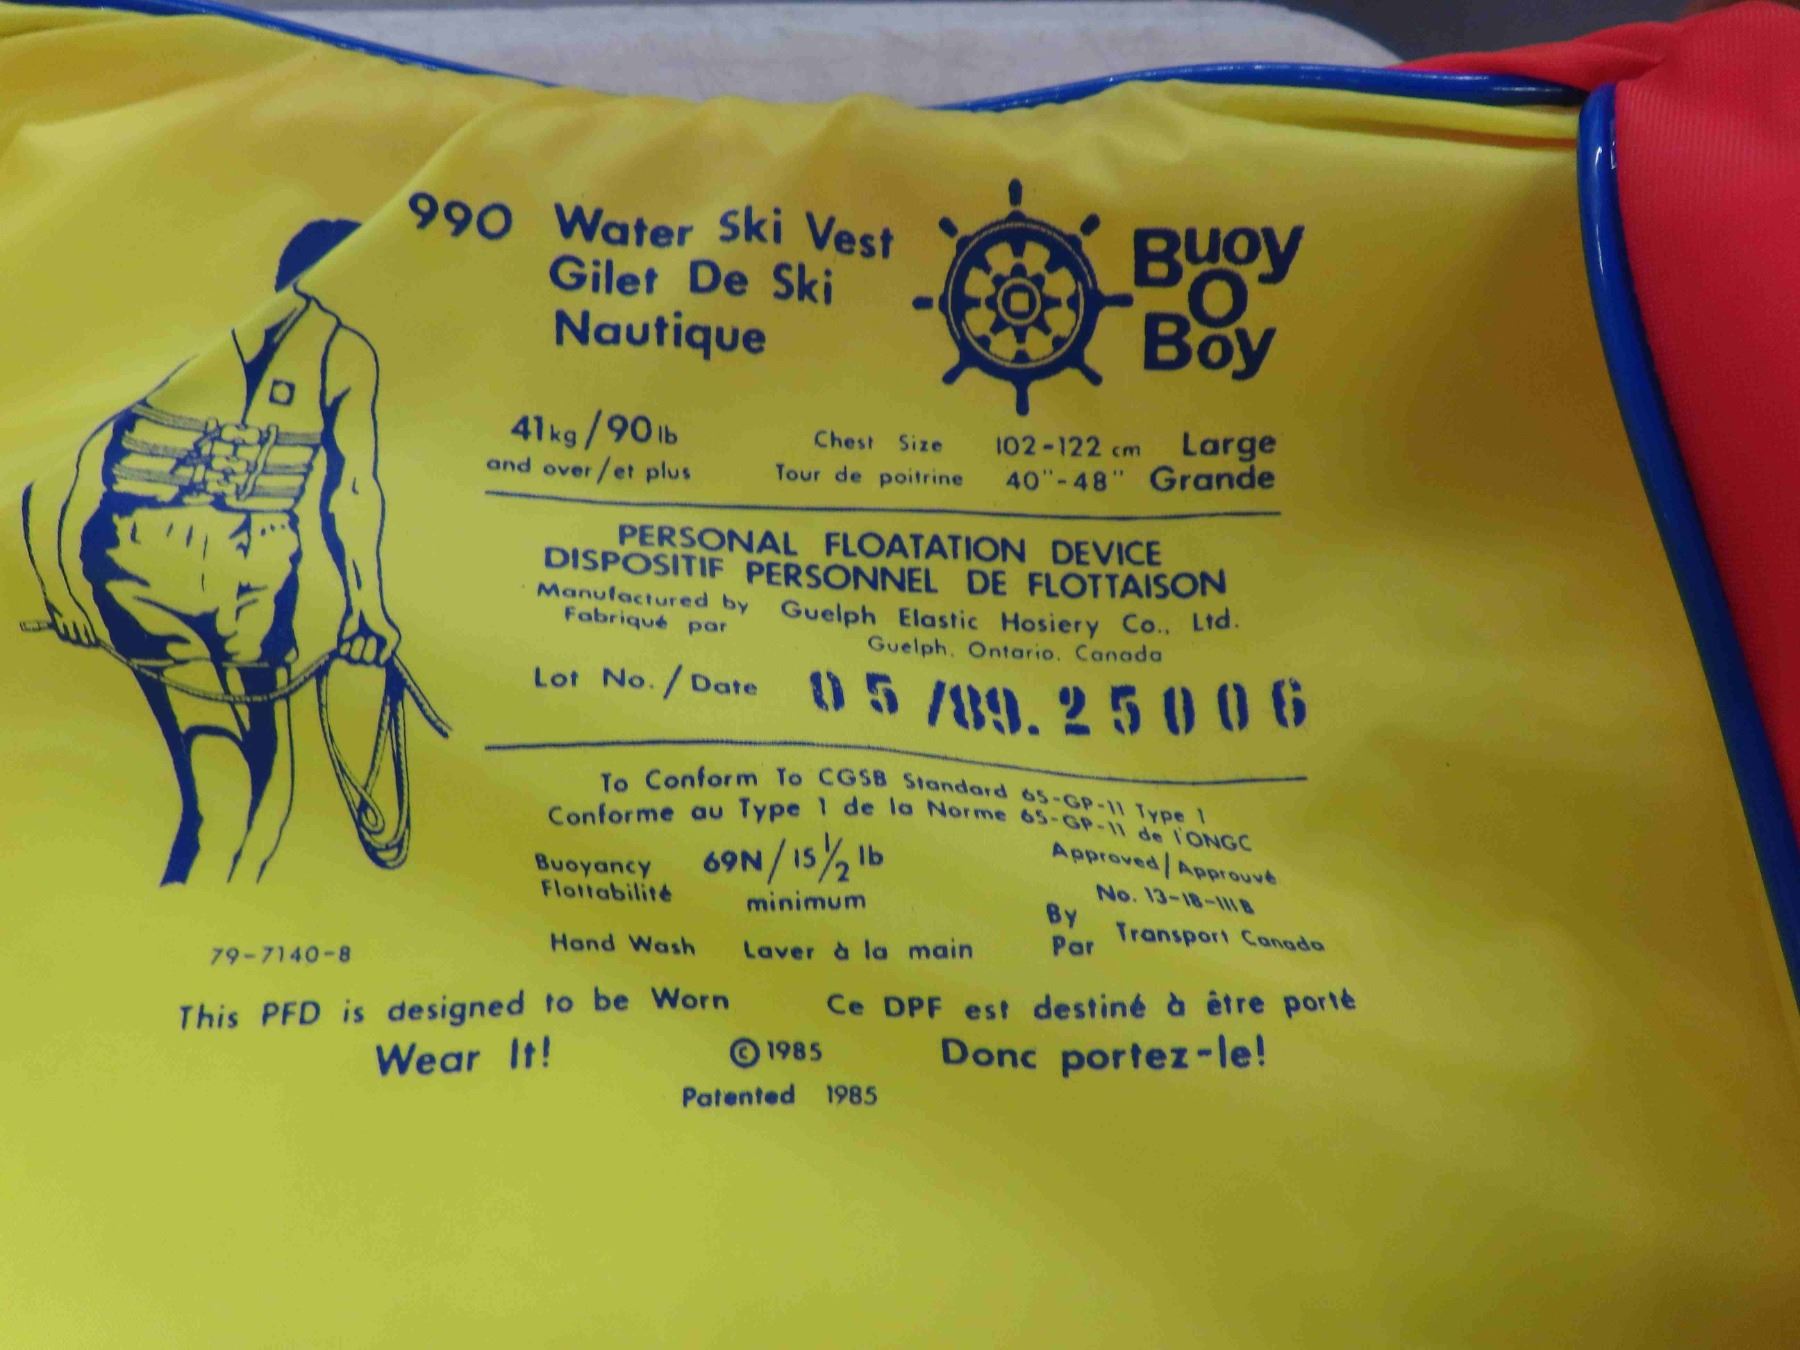 990 Water Ski Vest
Gilet De Ski
Nautique
Buoy
O
Boy
41kg/90lb
and over/et plus
Chest Size 102-122 cm Large
Tour de poitrine 40"-48" Grande
PERSONAL FLOATATION DEVICE
DISPOSITIF PERSONNEL DE FLOTTAISON
Manufactured by
Fabriqué par
Guelph Elastic Hosiery Co., Ltd.
Guelph, Ontario, Canada
Lot No./Date 05/89.25006
To Conform To CGSB Standard 65-GP-11 Type 1
Conforme au Type 1 de la Norme 65-GP-11 de l'ONGC
Buoyancy 69N/15½ lb
Flottabilité minimum
Approved/Approuvé
No. 13-18-111B
By
Par
Transport Canada
Hand Wash Laver à la main
79-7140-8
This PFD is designed to be Worn
Wear It!
Ce DPF est destiné à être porté
Donc portez-le!
©1985
Patented 1985